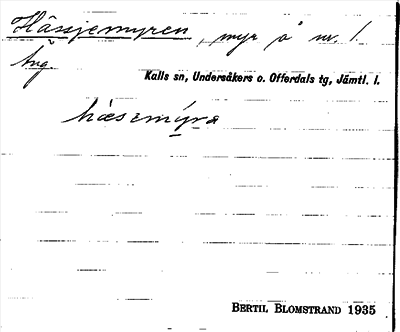 Hässjemyren, myr å nr. 1.
Äng
Kalls sn, Undersåkers o. Offerdals tg, Jämtl. l.
hæsɛmyra
BERTIL BLOMSTRAND 1935